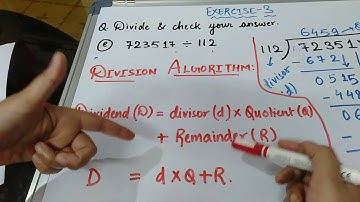 EXERCISE-3
Q. Divide & check your answer.
(e) 723517 ÷ 112
DIVISION ALGORITHM:
Dividend (D) = divisor (d) × Quotient (Q)
+ Remainder (R)
D = d × Q + R.
6459
112 ) 72351
- 672
divisor
(d)
051
- 448